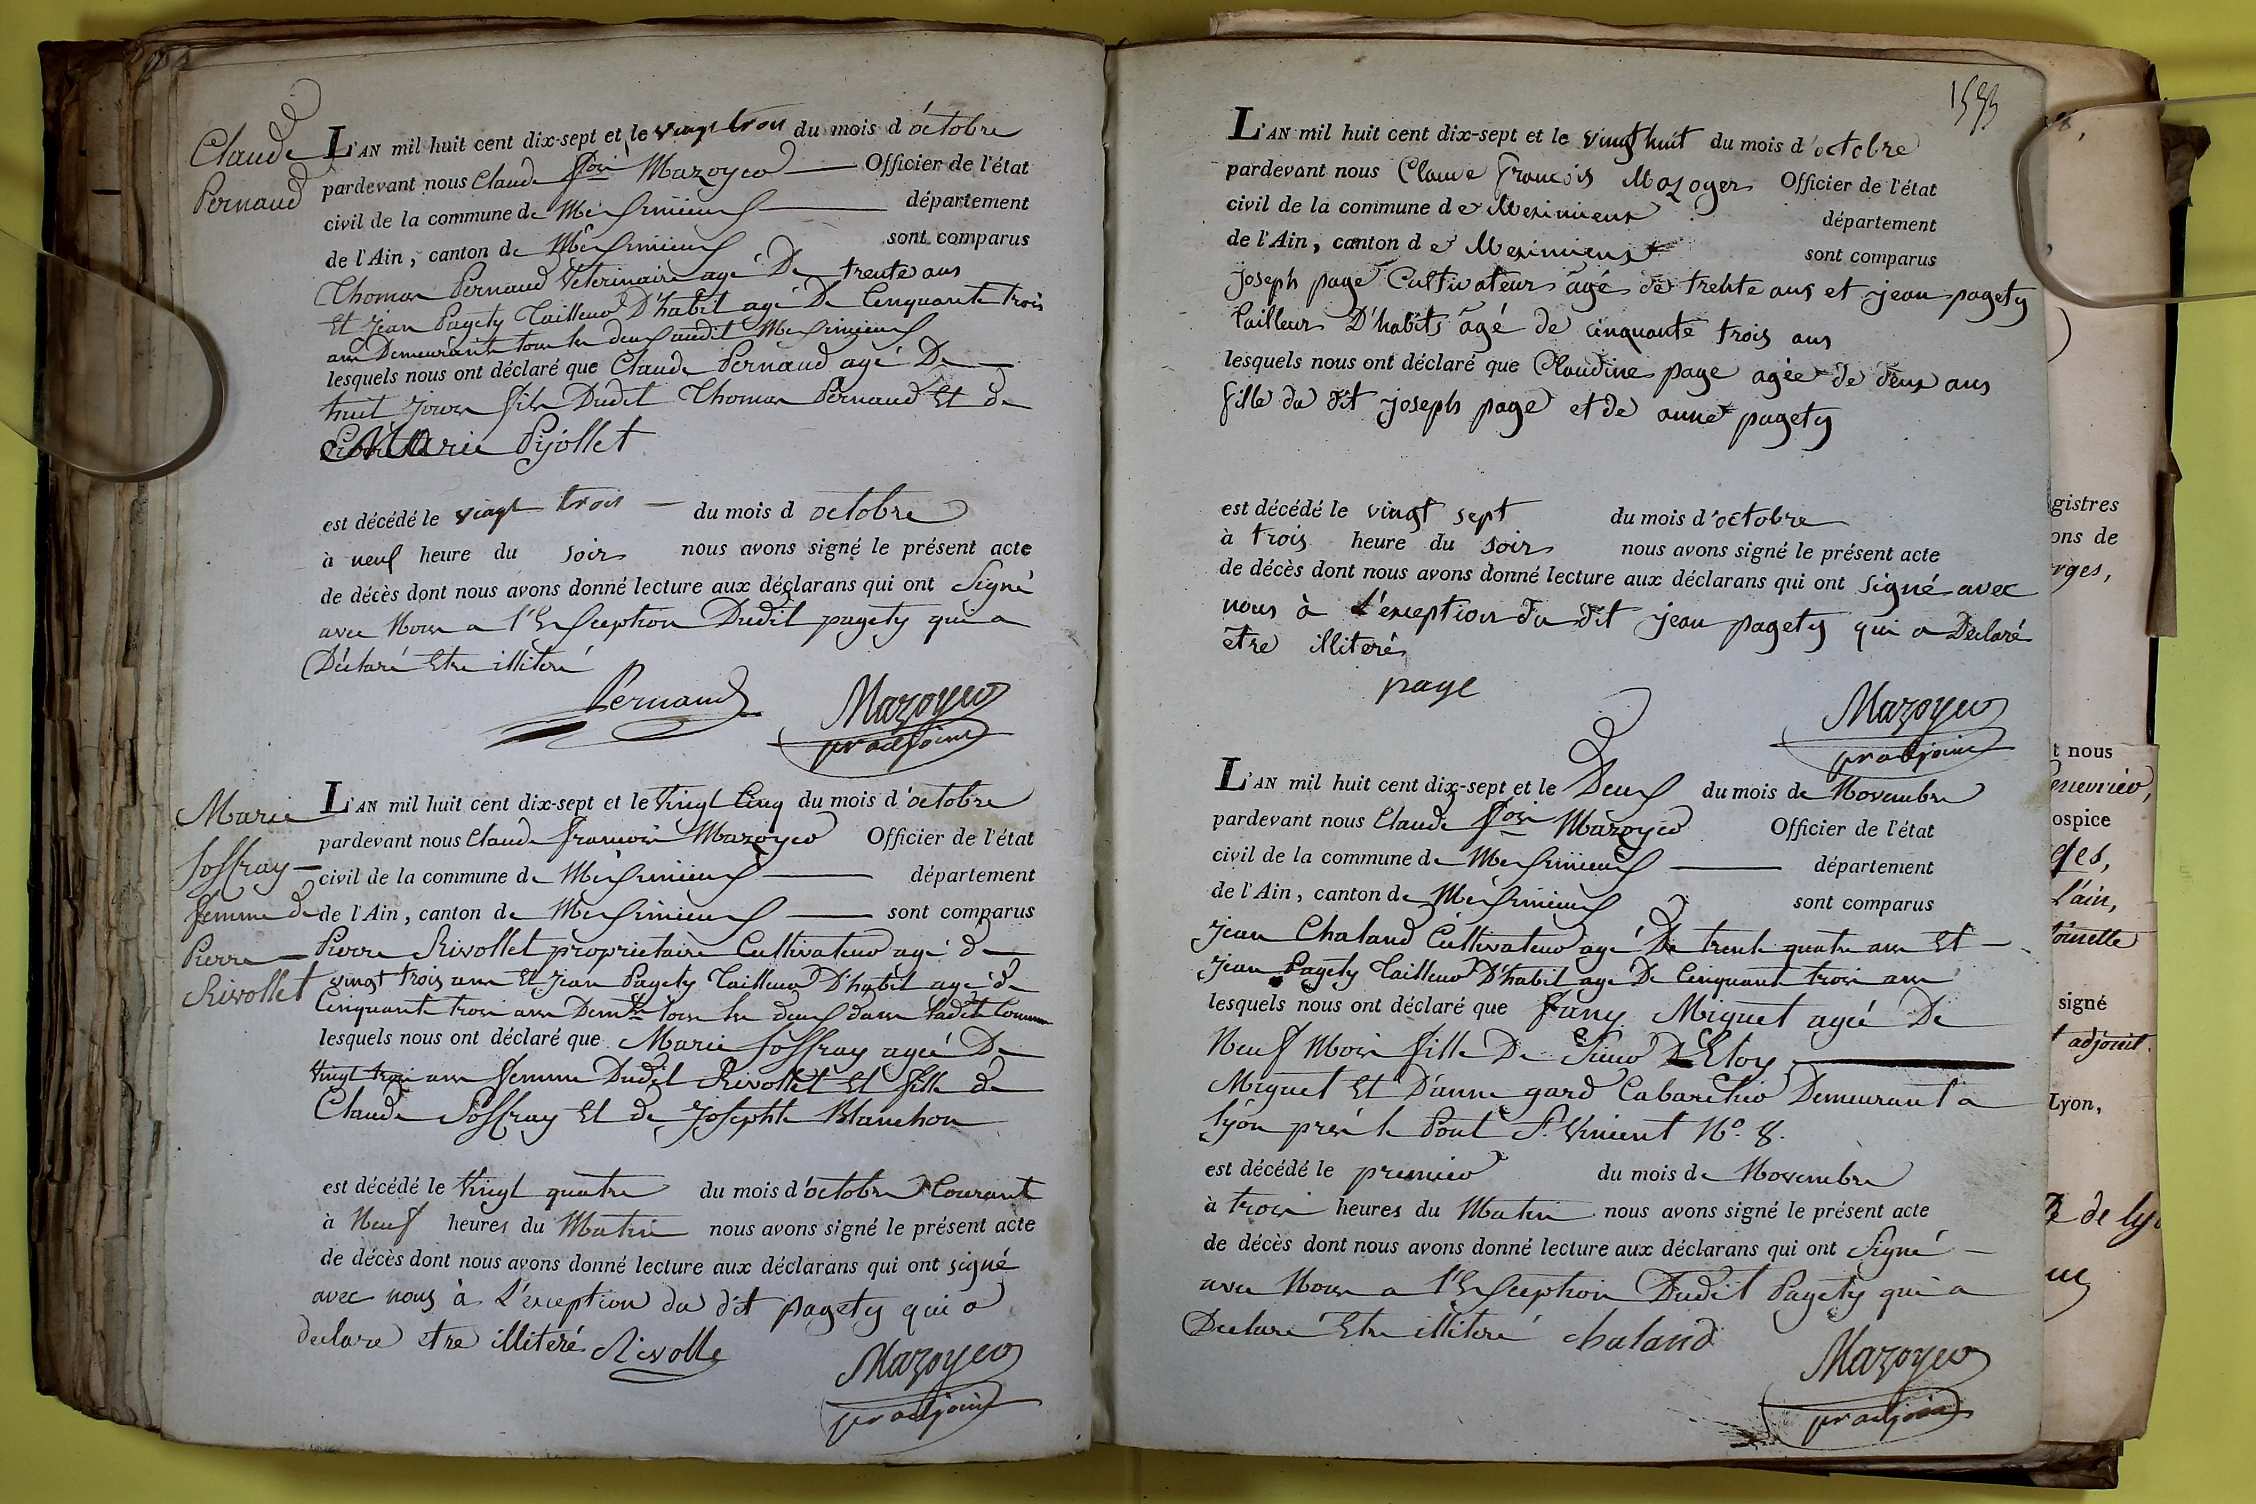 Claude
Pernaud
L'AN mil huit cent dix-sept et le vingt trois du mois d'octobre
pardevant nous Claude fois Mazoyer Officier de l'état
civil de la commune de Meximieux département
de l'Ain, canton de Meximieux sont comparus
Thomas Pernaud Veterinaire agé De trente ans
Et Jean Pagety Tailleur D'habit agé De Cinquante trois
ans Demeurants tous les deux audit Meximieux
lesquels nous ont déclaré que Claude Pernaud agé De
huit jours fils Dudit Thomas Pernaud Et de
Marie Pijollet
est décédé le vingt trois du mois d octobre
à neuf heure du soir nous avons signé le présent acte
de décès dont nous avons donné lecture aux déclarans qui ont Signé
avec Nous a l'Exception Dudit pagety qui a
Déclaré Etre illiteré
Pernaud
Mazoyer
pr adjoint
Marie
Joffray
femme de
Pierre
Rivollet
L'AN mil huit cent dix-sept et le Vingt Cinq du mois d'octobre
pardevant nous Claude francois Mazoyer Officier de l'état
civil de la commune de Meximieux département
de l'Ain, canton de Meximieux sont comparus
Pierre Rivollet proprietaire Cultivateur agé de
vingt trois ans Et Jean Pagety Tailleur D'habit agé de
Cinquante trois ans Demts tous les deux dans ladit Commune
lesquels nous ont déclaré que Marie Joffray agée De
Vingt trois ans femme Dudit Rivollet Et fille de
Claude Joffray Et de Josephte Blanchon
est décédé le Vingt quatre du mois d'octobre Courant
à Neuf heures du Matin nous avons signé le présent acte
de décès dont nous avons donné lecture aux déclarans qui ont signé
avec nous à L'exception du dit pagety qui a
declare etre illiteré
Rivolle
Mazoyer
pr adjoint
L'AN mil huit cent dix-sept et le vingt huit du mois d'octobre
pardevant nous Claude francois Mazoyer Officier de l'état
civil de la commune de Meximieux département
de l'Ain, canton de Meximieux sont comparus
Joseph page Cultivateur âgé de trente ans et jean pagety
tailleur D'habits âgé de cinquante trois ans
lesquels nous ont déclaré que Claudine page agée de deux ans
fille du dit joseph page et de anne pagety
est décédé le vingt sept du mois d'octobre
à trois heure du soir nous avons signé le présent acte
de décès dont nous avons donné lecture aux déclarans qui ont signé avec
nous à L'exception du dit jean pagety qui a Declaré
etre illiteré
page
Mazoyer
pr adjoint
L'AN mil huit cent dix-sept et le Deux du mois de Novembre
pardevant nous Claude fois Mazoyer Officier de l'état
civil de la commune de Meximieux département
de l'Ain, canton de Meximieux sont comparus
Jean Chaland Cultivateur agé De trente quatre ans Et
Jean Pagety Tailleur D'habit agé De Cinquante trois ans
lesquels nous ont déclaré que fany Miguet agée De
Neuf Mois fille De Sieur Eloy
Miguet Et D'anne gard Cabaretier Demeurant a
Lyon près le Pont St Vincent No. 8.
est décédé le premier du mois de Novembre
à trois heures du Matin nous avons signé le présent acte
de décès dont nous avons donné lecture aux déclarans qui ont Signé
avec Nous a l'Exception Dudit Pagety qui a
Declaré Etre illiteré
chaland
Mazoyer
pr adjoint
gistres
ons de
rges,
t nous
ospice
l'ain,
signé
adjoint
Lyon,